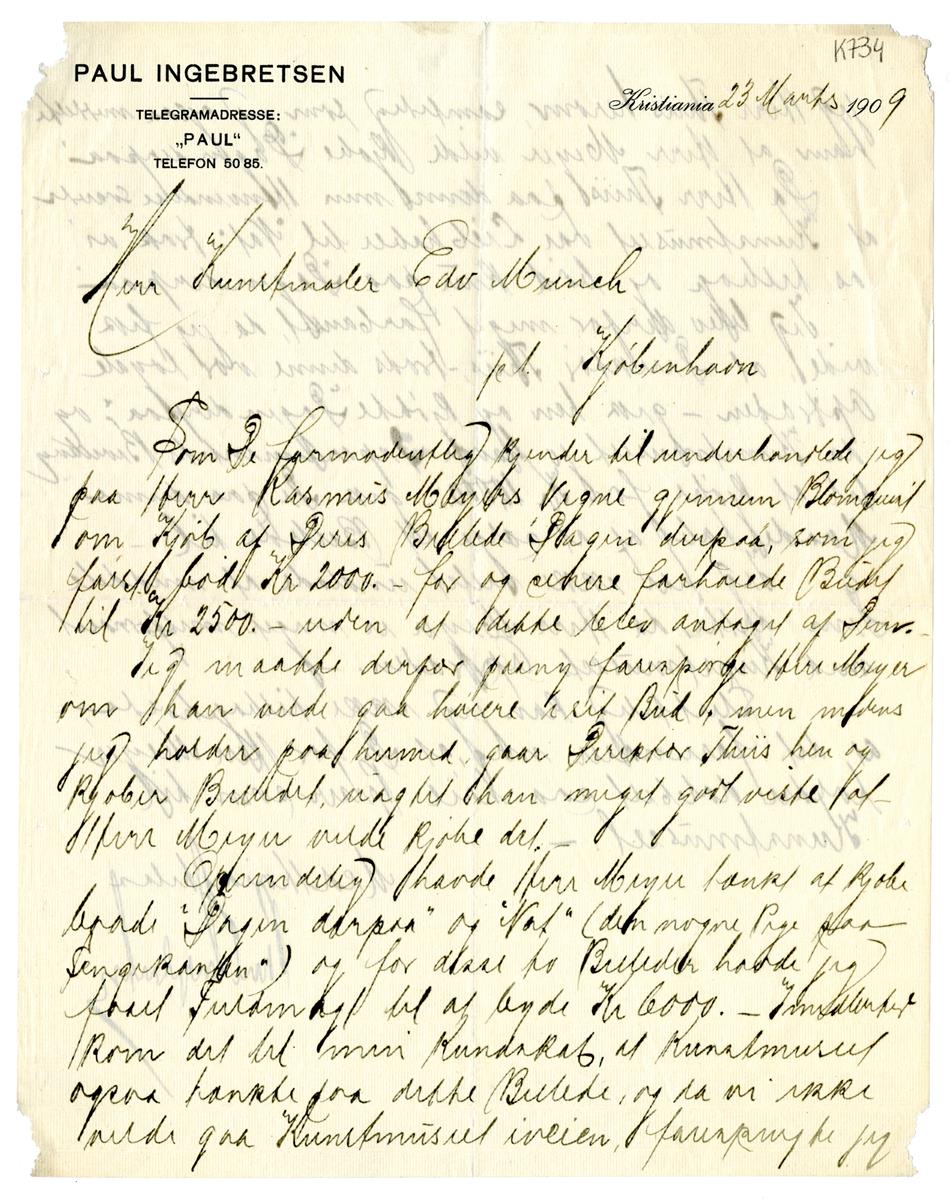 K734
PAUL INGEBRETSEN
TELEGRAMADRESSE:
„PAUL“
TELEFON 50 85.
Kristiania 23 Marts 1909
Herr Kunstmaler Edv Munch
pt. Kjøbenhavn
Som De formodentlig kjender til underhandlede jeg
paa Herr Rasmus Meyers Vegne gjennem Blomquist
om Kjøb af Deres Billede "Dagen derpaa, som jeg
først bød Kr 2000.- for og senere forhøiede Budet
til Kr 2500.- uden at dette blev antaget af Dem.-
Jeg maatte derfor paany forespørge Herr Meyer
om han vilde gaa høiere i sit Bud, men medens
jeg holder paa hermed, gaar Direktør Thiis hen og
kjøber Billedet uagtet han meget godt viste at
Herr Meyer vilde kjøbe det.-
Oprindelig havde Herr Meyer tænkt at kjøbe
baade "Dagen derpaa" og "Nat" (den nøgne Pige paa
Sengekanten") og for disse to Billeder havde jeg
faaet Fuldmagt til at byde Kr 6000.- Imidlertid
kom det til min Kundskab, at Kunstmuseet
ogsaa tænkte paa dette Billede, og da vi ikke
vilde gaa Kunstmuseet iveien, forespurgte jeg